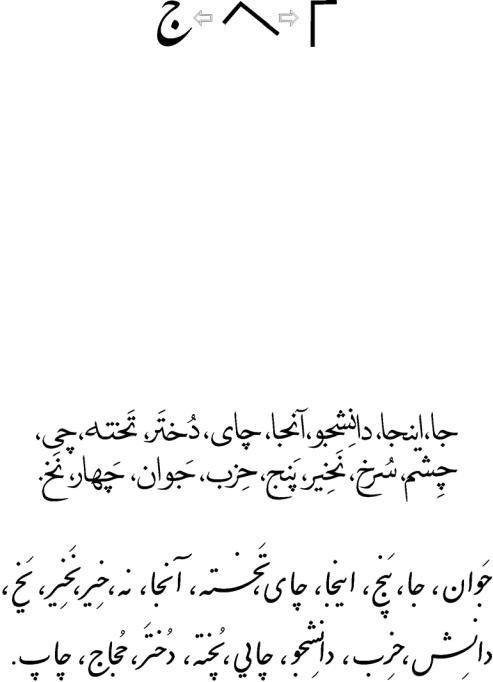 ج
جا،اینجا، دانِشجو،آنجا، چای، دُختَر، تَخته، چی،
چِشم، سُرخ، نَخیر، پَنج، حِزب، جَوان، چَهار، نَخ.
جَوان، جا، پَنج، اینجا، چای، تَخته، آنجا، نه، خیر، نَخیر، یَخ،
دانِش، حِزب، دانِشجو، چایی، پُخته، دُختَر، حُجاج، چاپ.